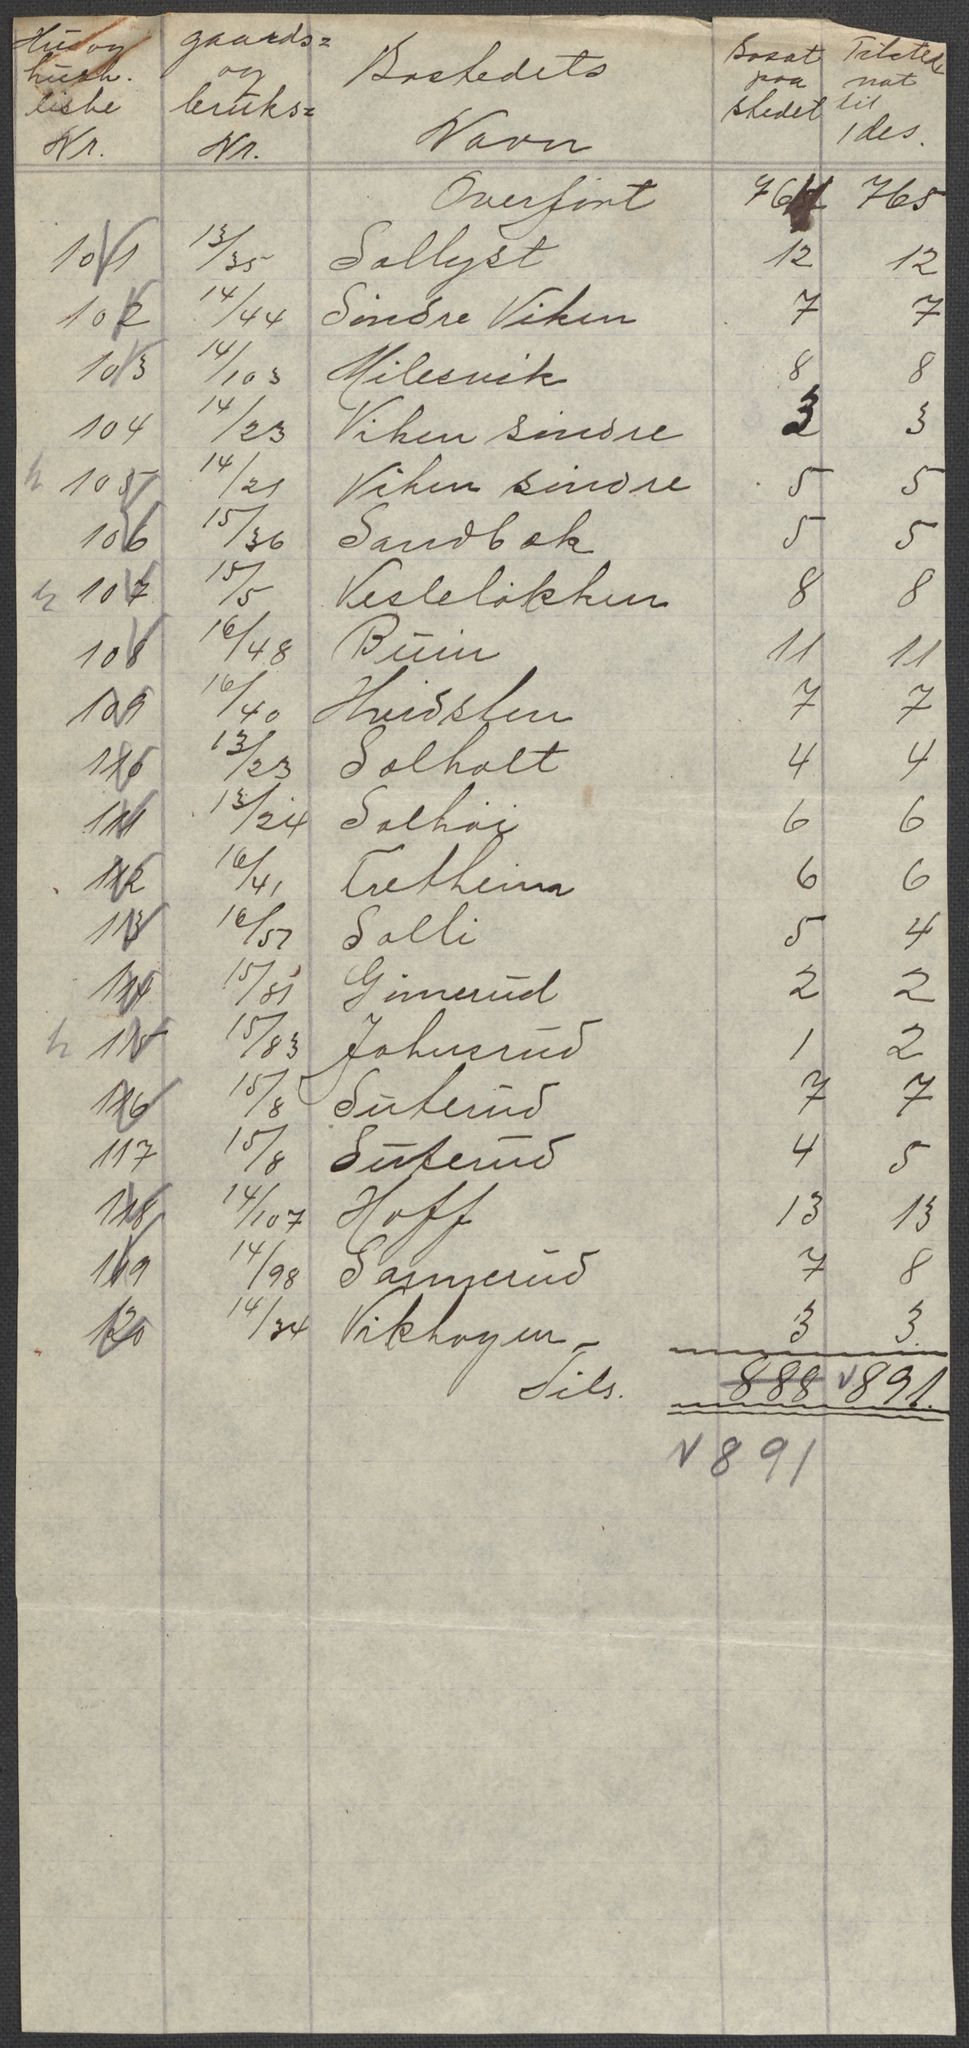 Hus og hush. liste Nr. gaards= og bruks= Nr. Bostedets Navn Bosat paa stedet Tilstede nat til 1 des.
Overført 765
101 13/35 Sollyst 12 12
102 14/44 Sindre Viken 7 7
103 14/103 Milesvik 8 8
104 14/23 Viken sindre 3 3
h 105 14/21 Viken sindre 5 5
106 15/36 Sandbæk 5 5
h 107 15/5 Vesleløkken 8 8
108 16/48 Buin 11 11
109 16/40 Hvidsten 7 7
110 13/23 Solholt 4 4
111 13/24 Solhöi 6 6
112 16/41 Tretheim 6 6
113 16/57 Solli 5 4
114 15/81 Gimerud 2 2
h 115 15/83 Johnsrud 1 2
116 15/8 Suterud 7 7
117 15/8 Suterud 4 5
118 14/107 Hoff 13 13
119 14/98 Sannerud 7 8
120 14/34 Vikhagen 3 3
Tils. 888 891.
891